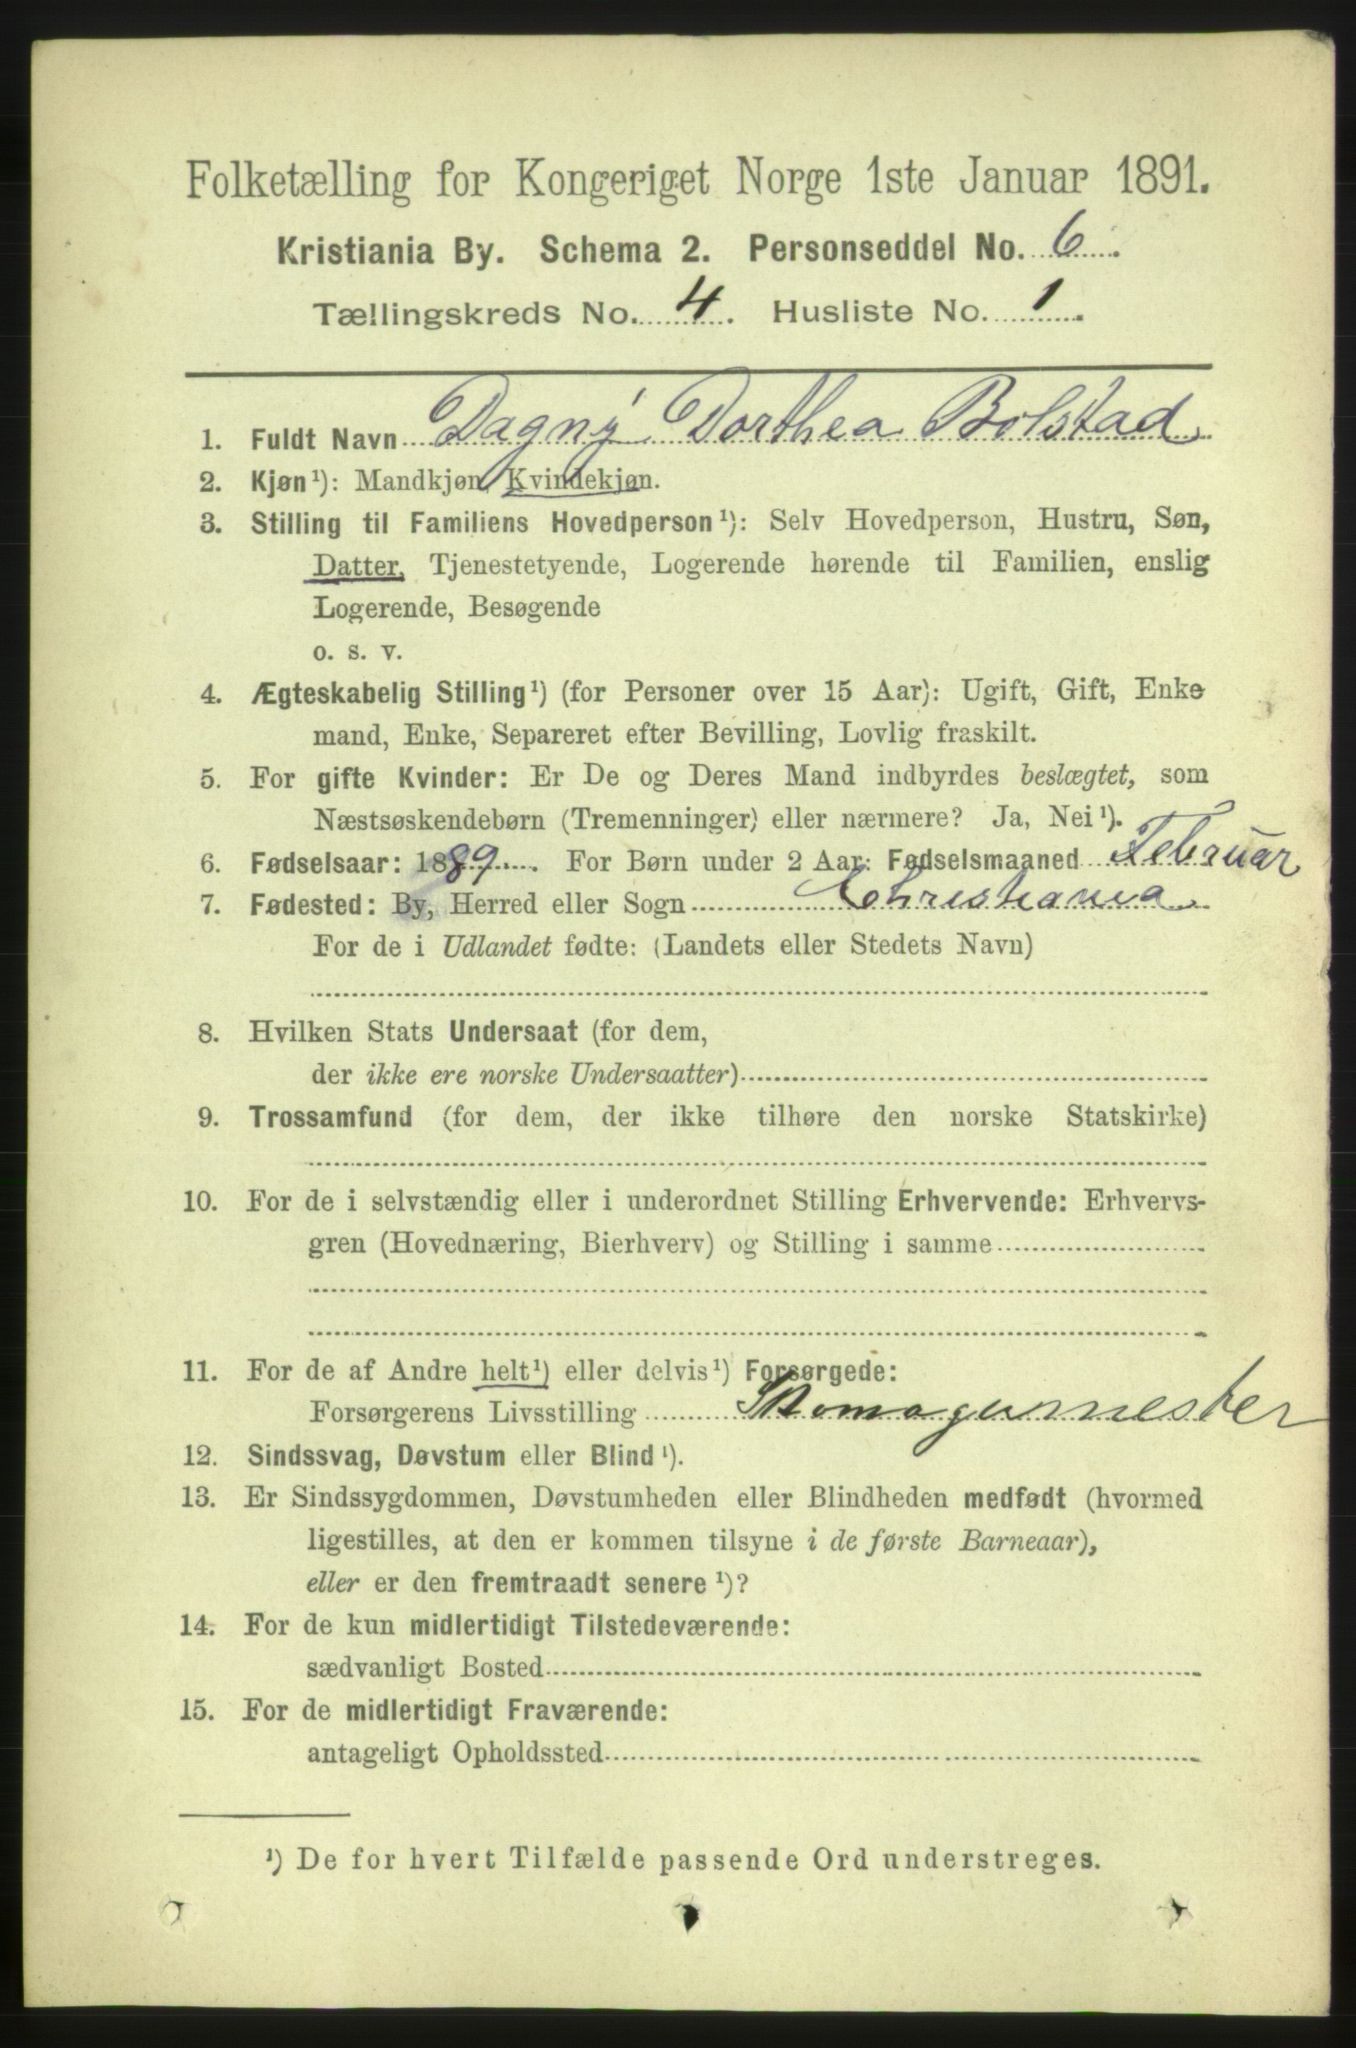 Folketælling for Kongeriget Norge 1ste Januar 1891.
Kristiania By. Schema 2. Personseddel No. 6.
Tællingskreds No. 4. Husliste No. 1.
1. Fuldt Navn Dagny Dorthea Bolstad
2. Kjøn ¹): Mandkjøn, Kvindekjøn.
3. Stilling til Familiens Hovedperson ¹): Selv Hovedperson, Hustru, Søn,
Datter, Tjenestetyende, Logerende hørende til Familien, enslig
Logerende, Besøgende
o. s. v.
4. Ægteskabelig Stilling ¹) (for Personer over 15 Aar): Ugift, Gift, Enke
mand, Enke, Separeret efter Bevilling, Lovlig fraskilt.
5. For gifte Kvinder: Er De og Deres Mand indbyrdes beslægtet, som
Næstsøskendebørn (Tremenninger) eller nærmere? Ja, Nei ¹).
6. Fødselsaar: 1889. For Børn under 2 Aar: Fødselsmaaned Februar
7. Fødested: By, Herred eller Sogn Christiania
For de i Udlandet fødte: (Landets eller Stedets Navn)
8. Hvilken Stats Undersaat (for dem,
der ikke ere norske Undersaatter)
9. Trossamfund (for dem, der ikke tilhøre den norske Statskirke)
10. For de i selvstændig eller i underordnet Stilling Erhvervende: Erhvervs-
gren (Hovednæring, Bierhverv) og Stilling i samme
11. For de af Andre helt ¹) eller delvis ¹) Forsørgede:
Forsørgerens Livsstilling Skomagermester
12. Sindssvag, Døvstum eller Blind ¹).
13. Er Sindssygdommen, Døvstumheden eller Blindheden medfødt (hvormed
ligestilles, at den er kommen tilsyne i de første Barneaar),
eller er den fremtraadt senere ¹)?
14. For de kun midlertidigt Tilstedeværende:
sædvanligt Bosted
15. For de midlertidigt Fraværende:
antageligt Opholdssted
¹) De for hvert Tilfælde passende Ord understreges.